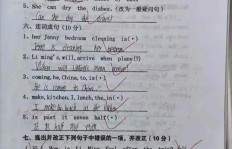 5. She can dry the dishes. (改为一般疑问句)
Can she dry the dishes?
六、连词成句 (10 分)
1. her Jenny bedroom cleaning is(•)
Jenny is cleaning her bedroom
2. Li ming's, will, arrive when plane(?)
When will Li ming's plane arrive?
3. coming, he, China, to, is(•)
He is coming to China
4. make, kitchen, I, lunch, the, in(•)
I make lunch in the kitchen
5. is past it seven half(•)
It is half past seven
七、选出并改正下列句子中错误的一项，并改正 (10 分)